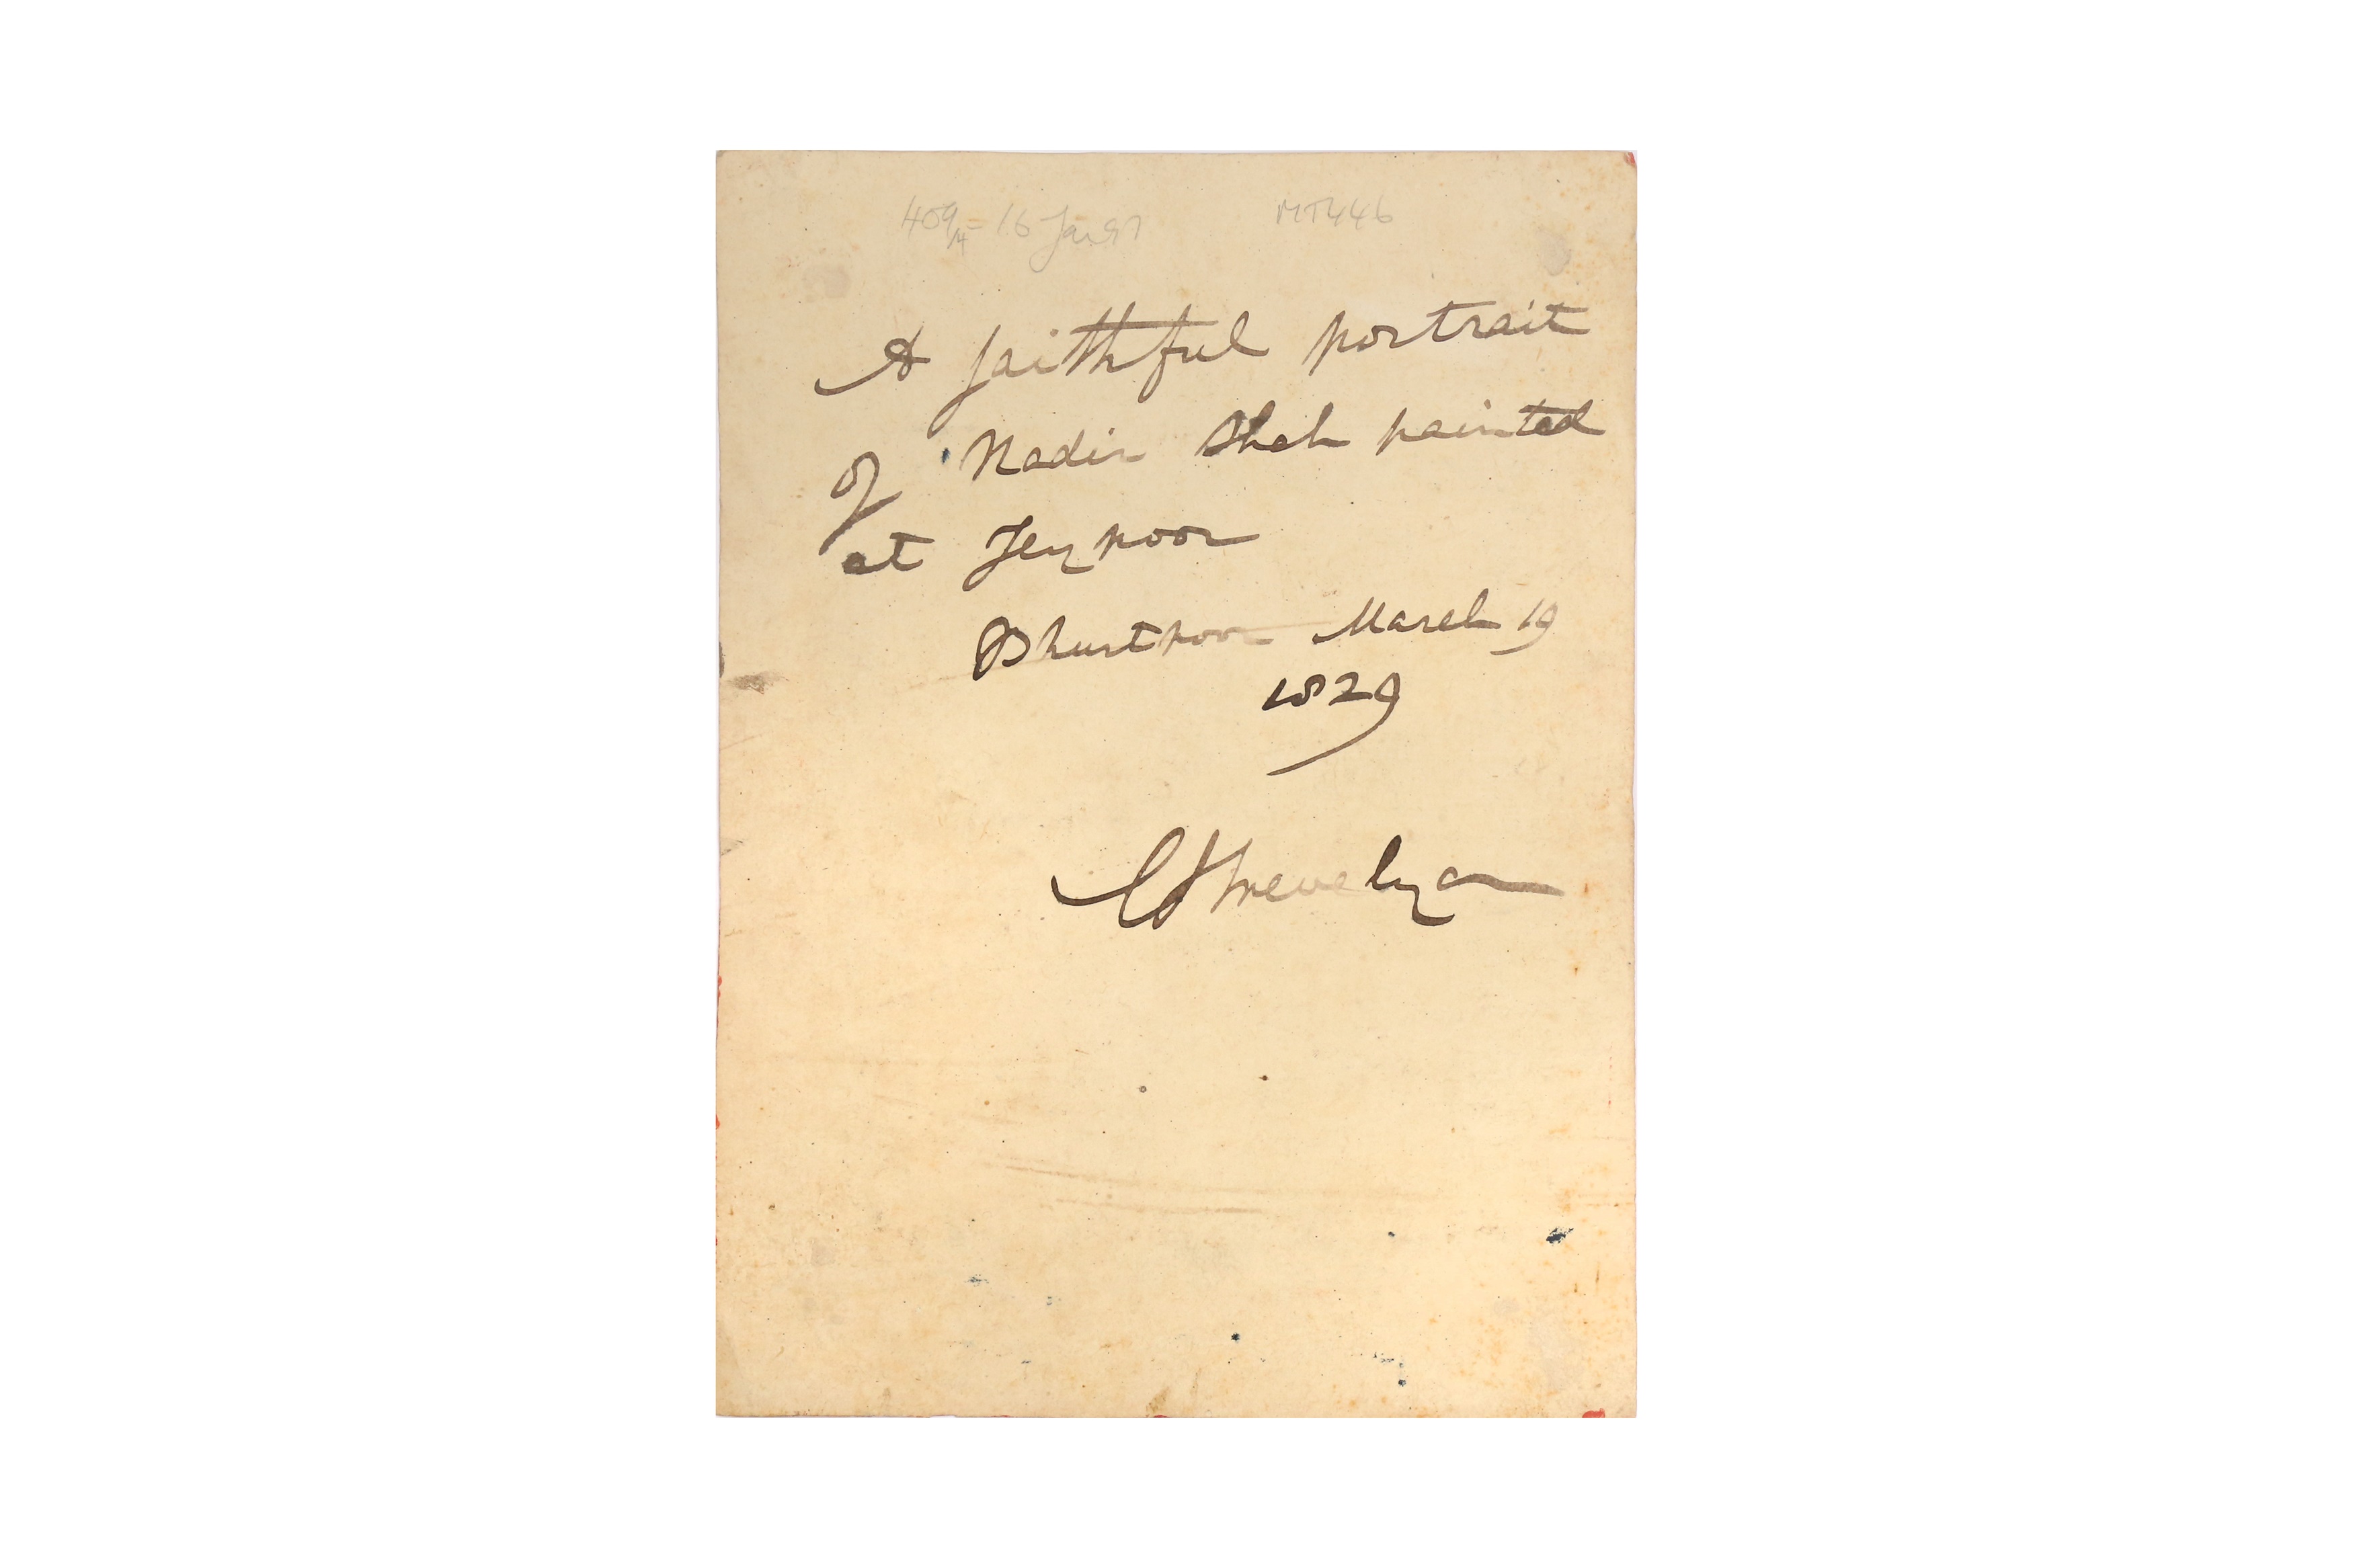 409/4 = 16 Jan 97 MT446
A faithful portrait
of Nadir Shah painted
at Jeypoor
Bhurtpoor March 19
1829
CTrevelyan